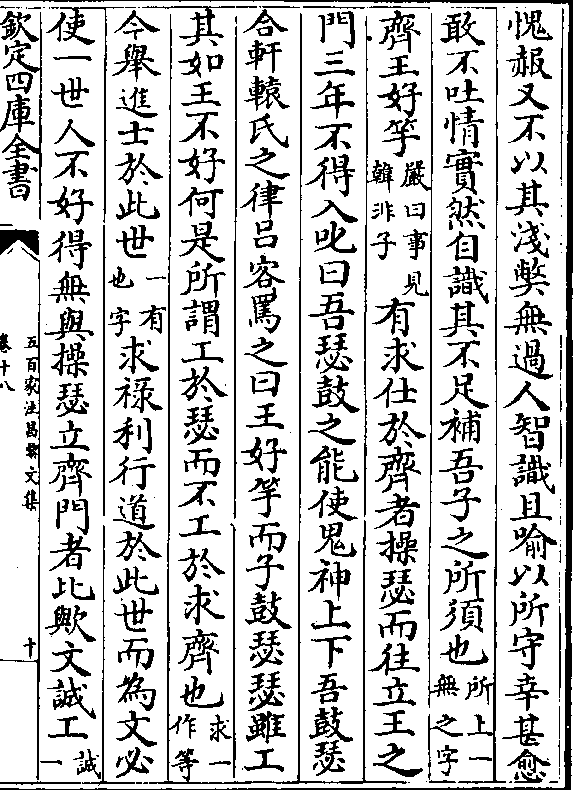 愧赧又不以其淺弊無過人智識且喻以所守幸甚愈
敢不吐情實然自識其不足補吾子之所須也所上一無之字
齊王好竽嚴曰事見韓非子有求仕於齊者操瑟而往立王之
門三年不得入叱曰吾瑟鼓之能使鬼神上下吾鼓瑟
合軒轅氏之律呂客罵之曰王好竽而子鼓瑟瑟雖工
其如王不好何是所謂工於瑟而不工於求齊也求一作等
今舉進士於此世一有也字求祿利行道於此世而為文必
使一世人不好得無與操瑟立齊門者比歟文誠工誠一
欽定四庫全書
五百家注昌黎文集
卷十八
十